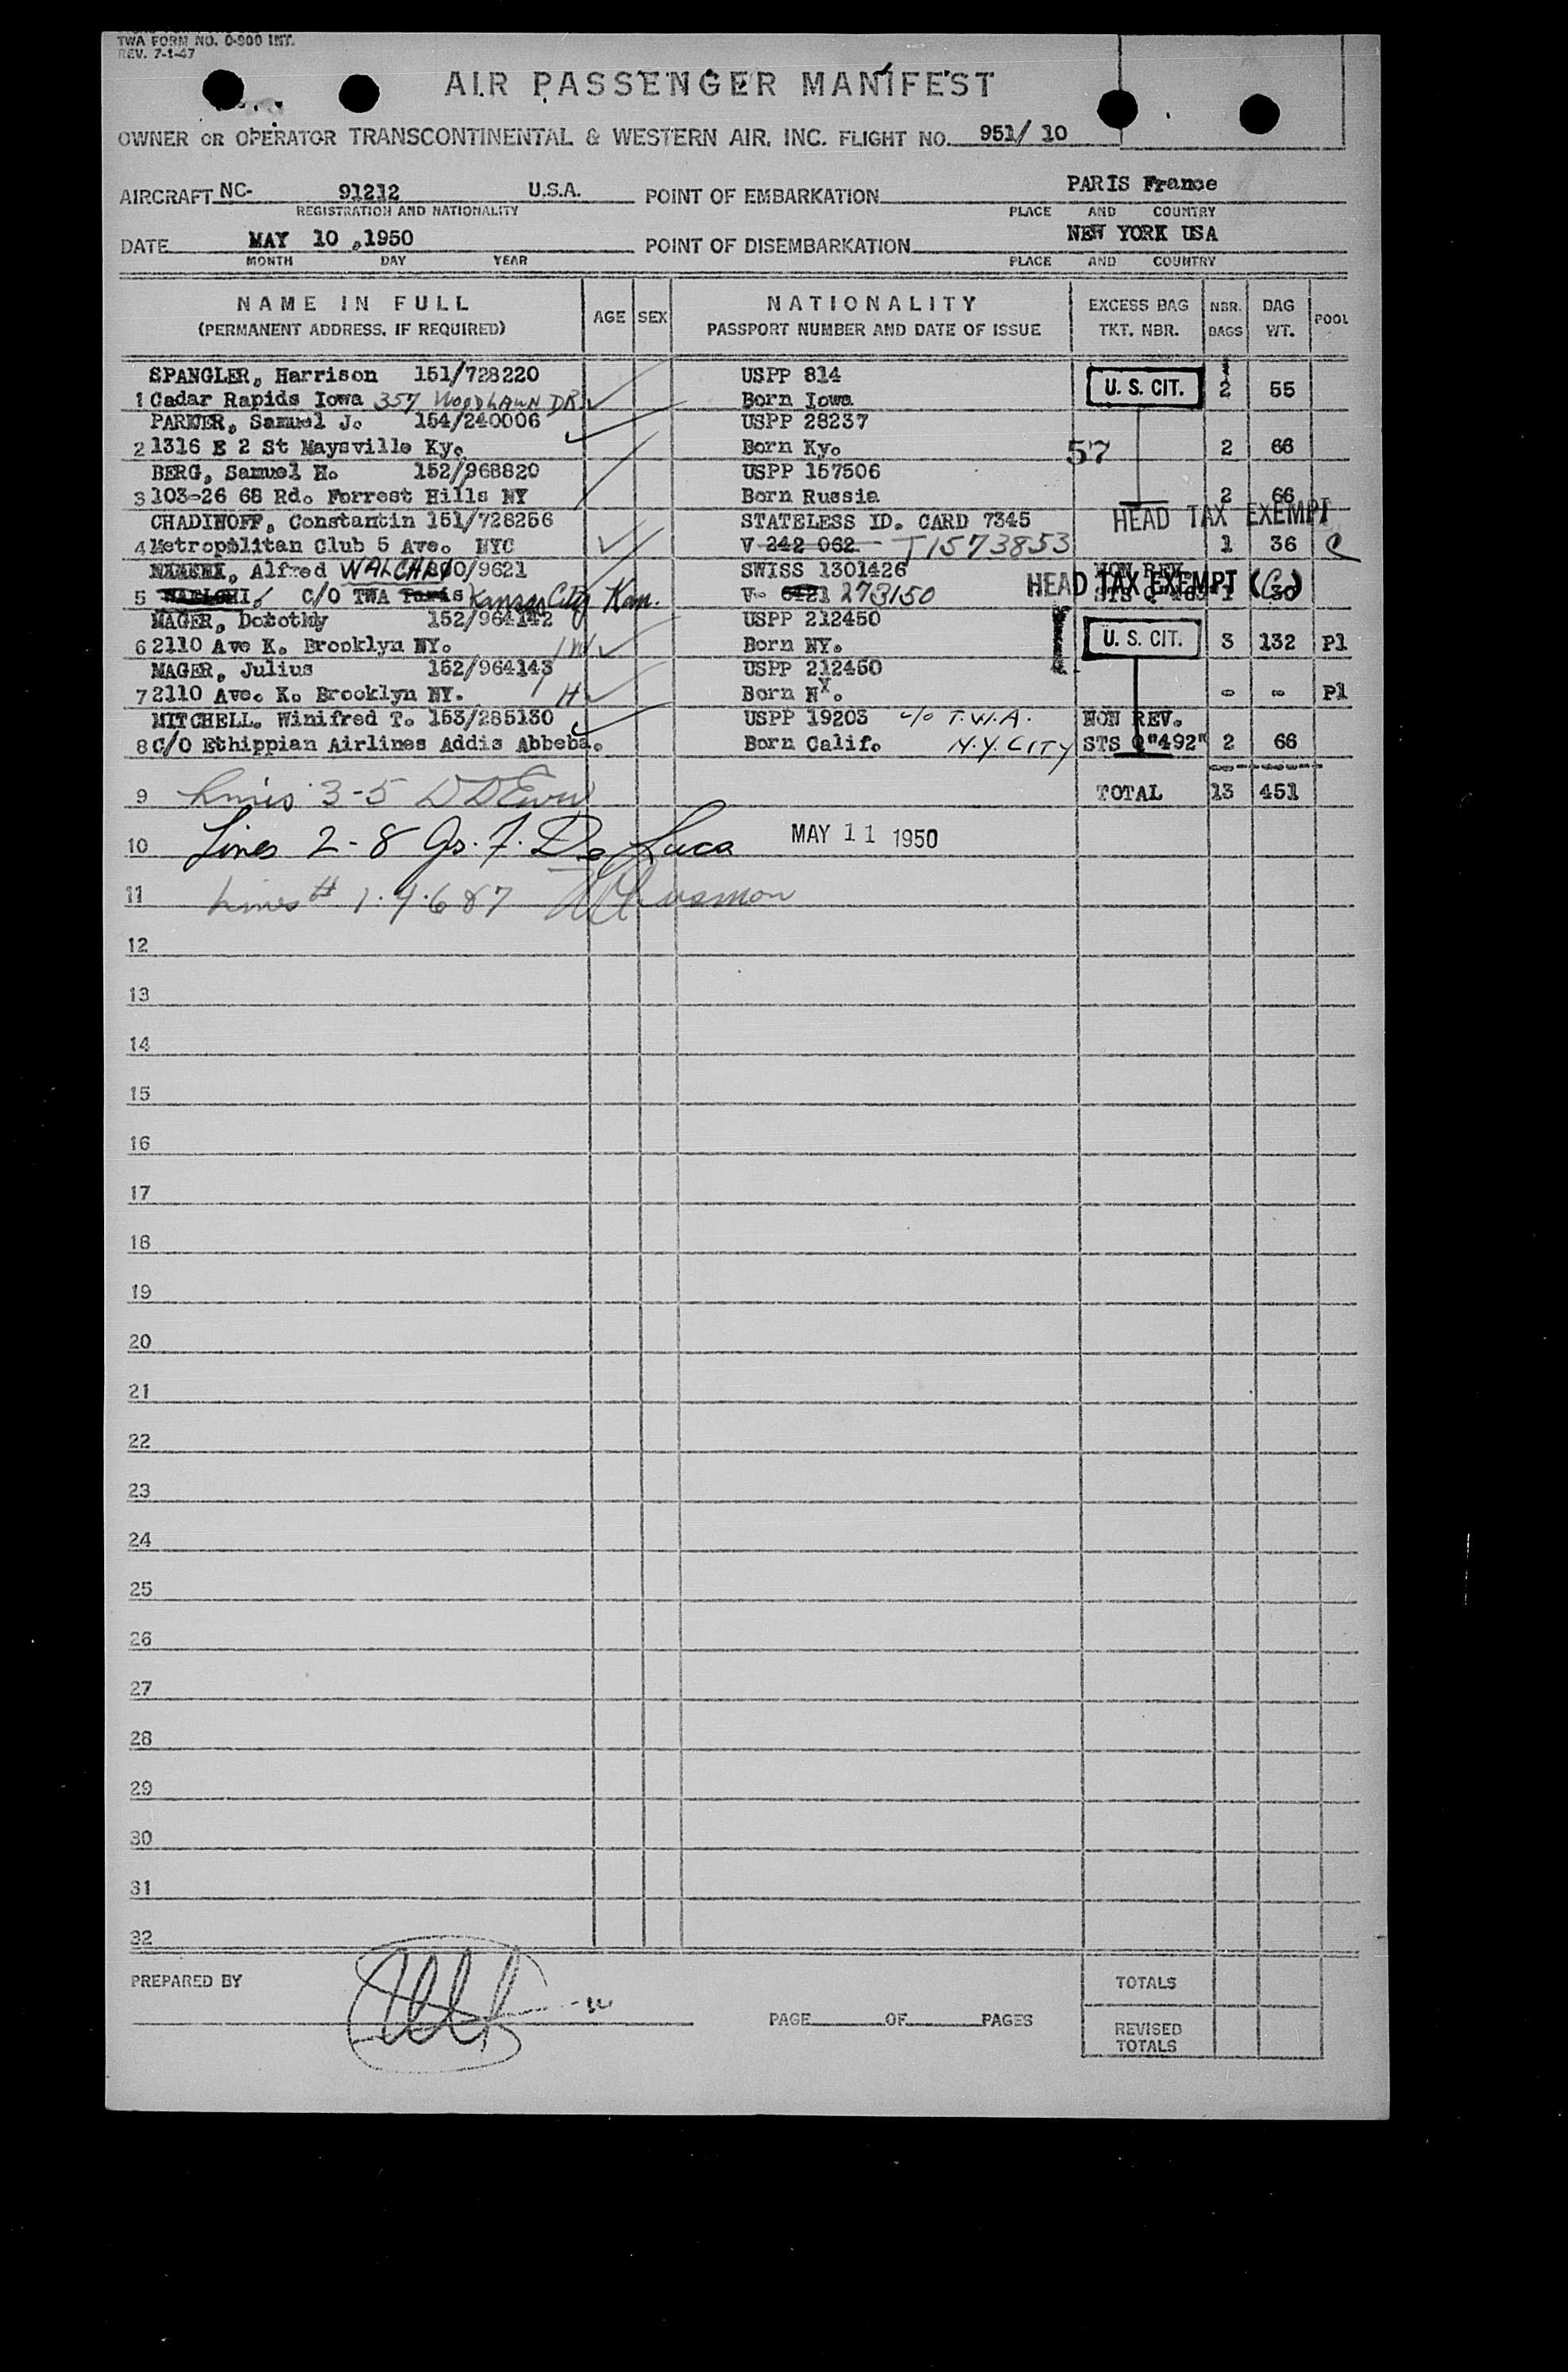 TWA FORM NO. 0-900 INT.
REV. 7-1-47
AIR PASSENGER MANIFEST
OWNER OR OPERATOR TRANSCONTINENTAL & WESTERN AIR, INC. FLIGHT NO. 951/ 10
AIRCRAFT NC- 91212 U.S.A. POINT OF EMBARKATION PARIS France
REGISTRATION AND NATIONALITY PLACE AND COUNTRY
DATE MAY 10 ,1950 POINT OF DISEMBARKATION NEW YORK USA
MONTH DAY YEAR PLACE AND COUNTRY
NAME IN FULL AGE SEX NATIONALITY EXCESS BAG NBR. BAG POOL
(PERMANENT ADDRESS, IF REQUIRED) PASSPORT NUMBER AND DATE OF ISSUE TKT. NBR. BAGS WT.
SPANGLER, Harrison 151/728220 USPP 814 U. S. CIT. 2 55
1 Cadar Rapids Iowa 357 WOODLAWN DR Born Iowa
PARKER, Samuel J. 154/240006 USPP 28237
2 1316 E 2 St Maysville Ky. Born Ky. 57 2 66
BERG, Samuel H. 152/968820 USPP 157506
3 103-26 68 Rd. Forrest Hills NY Born Russia 2 66
CHADINOFF, Constantin 151/728256 STATELESS ID. CARD 7345 HEAD TAX EXEMPT
4 Metropolitan Club 5 Ave. NYC V 242 062 T1573853 1 36 C
Alfred /9621 SWISS 1301426 NON REV.
5 C/O TWA Paris Kansas City Kan. V- 273150 HEAD TAX EXEMPT (C)
MAGER, Dorothy 152/964142 USPP 212450 U. S. CIT.
6 2110 Ave K. Brooklyn NY. W Born NY. 3 132 Pl
MAGER, Julius 152/964143 USPP 212450
7 2110 Ave. K. Brooklyn NY. H Born NY. - - Pl
MITCHELL. Winifred T. 153/285130 USPP 19203 c/o T.W.A. NON REV.
8 C/O Ethippian Airlines Addis Abbeba. Born Calif. N.Y. CITY STS Q"492" 2 66
9 Lines 3-5 TOTAL 13 451
10 Lines 2-8 Js. F. De Luca MAY 11 1950
11 Lines # 1.4.6 & 7
12
13
14
15
16
17
18
19
20
21
22
23
24
25
26
27
28
29
30
31
32
PREPARED BY TOTALS
PAGE OF PAGES REVISED
TOTALS